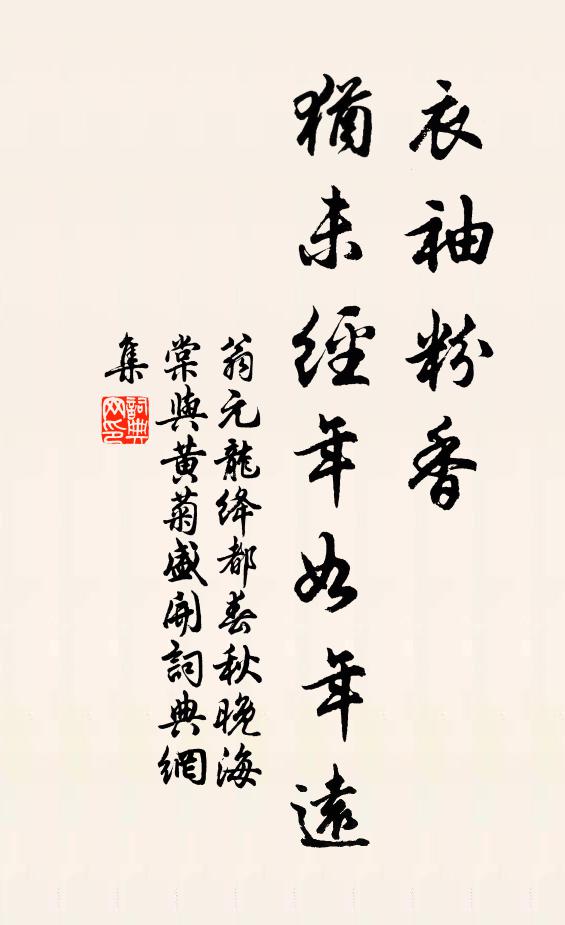 衣袖粉香
猶未經年如年遠
翁元龍絳都春秋晚海
棠與黃菊盛開詞典網
集
詞典
网印